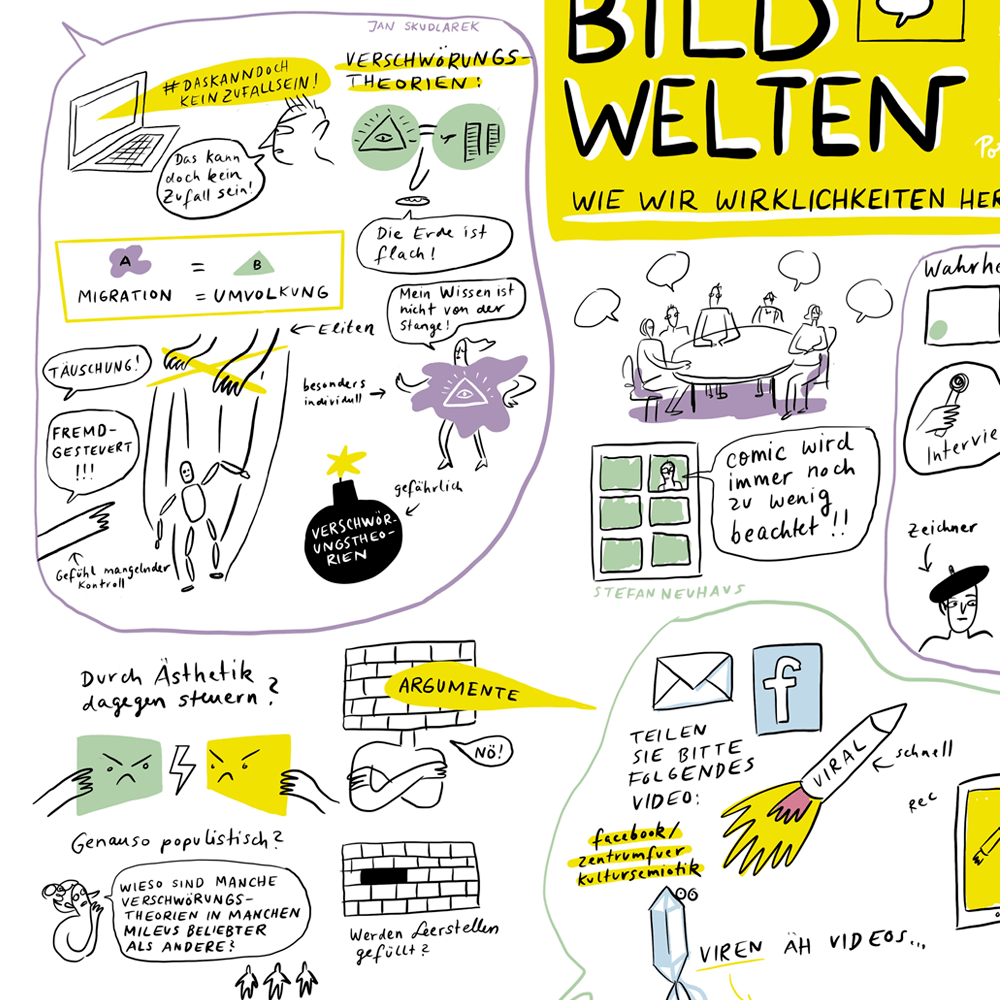 JAN SKUDLAREK
#DASKANNDOCH
KEINZUFALLSEIN!
VERSCHWÖRUNGS-
THEORIEN:
Das kann
doch kein
Zufall sein!
Die Erde ist
flach!
A
=
B
MIGRATION
= UMVOLKUNG
Mein Wissen ist
nicht von der
Stange!
← Eliten
TÄUSCHUNG!
besonders
individuell →
FREMD-
GESTEUERT
!!!
gefährlich
VERSCHWÖR-
UNGSTHEO-
RIEN
Gefühl mangelnder
Kontroll
BILD
WELTEN
WIE WIR WIRKLICHKEITEN HER
Wahrhe
Intervie
comic wird
immer noch
zu wenig
beachtet!!
STEFAN NEUHAUS
Zeichner
Durch Ästhetik
dagegen steuern?
ARGUMENTE
NÖ!
Genauso populistisch?
WIESO SIND MANCHE
VERSCHWÖRUNGS-
THEORIEN IN MANCHEN
MILEUS BELIEBTER
ALS ANDERE?
Werden Leerstellen
gefüllt?
f
TEILEN
SIE BITTE
FOLGENDES
VIDEO:
VIRAL
schnell
REC
facebook/
zentrumfuer
kultursemiotik
VIREN ÄH VIDEOS...